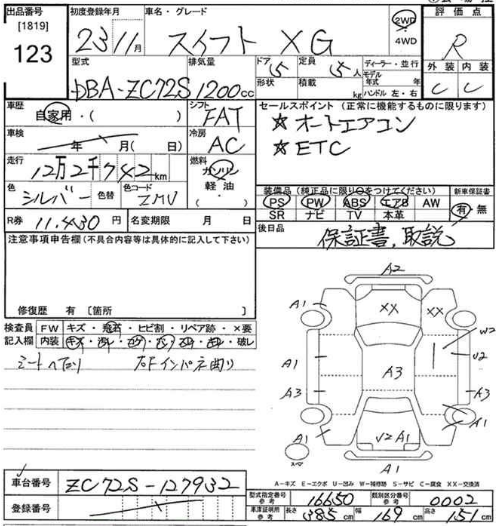 出品番号 [1819] 123
初度登録年月 23年11月
車名・グレード スイフト XG
2WD 4WD
評価点 R
外装 C 内装 C
型式 DBA-ZC72S
排気量 1200cc
ドア 5 形状
定員 5人 積載 kg
ディーラー・並行
モデル年式
ハンドル 左・右
車歴 自家用・
シフト FAT
車検 年 月(日)
冷房 AC
セールスポイント(正常に機能するものに限ります)
☆オートエアコン
☆ETC
走行 12万2千742km
燃料 ガソリン 軽油
色 シルバー 色替
色コード ZMV
装備品(純正品に限り○をつけてください)
PS PW ABS エアB AW
SR ナビ TV 本革
新車保証書 有・無
R券 11,430円
名変期限 月 日
後日品 保証書,取説
注意事項申告欄(不具合内容等は具体的に記入して下さい)
修復歴 有[箇所
検査員記入欄
FW キズ・飛石・ヒビ割・リペア跡・×要
内装 キズ・汚レ・・破レ
シートヘタリ
インパネ曲り
A2
A1 XX A1
W2
A1 A3 U2
A3 A3
A1 U2A1 A1
A1
A-キズ E-エクボ U-凹み W-補修跡 S-サビ C-腐食 XX-交換済
車台番号 ZC72S-127932
登録番号
型式指定番号 参考 16650
類別区分番号 参考 0002
車庫証明用 参考 長さ 385cm 幅 169cm 高さ 151cm